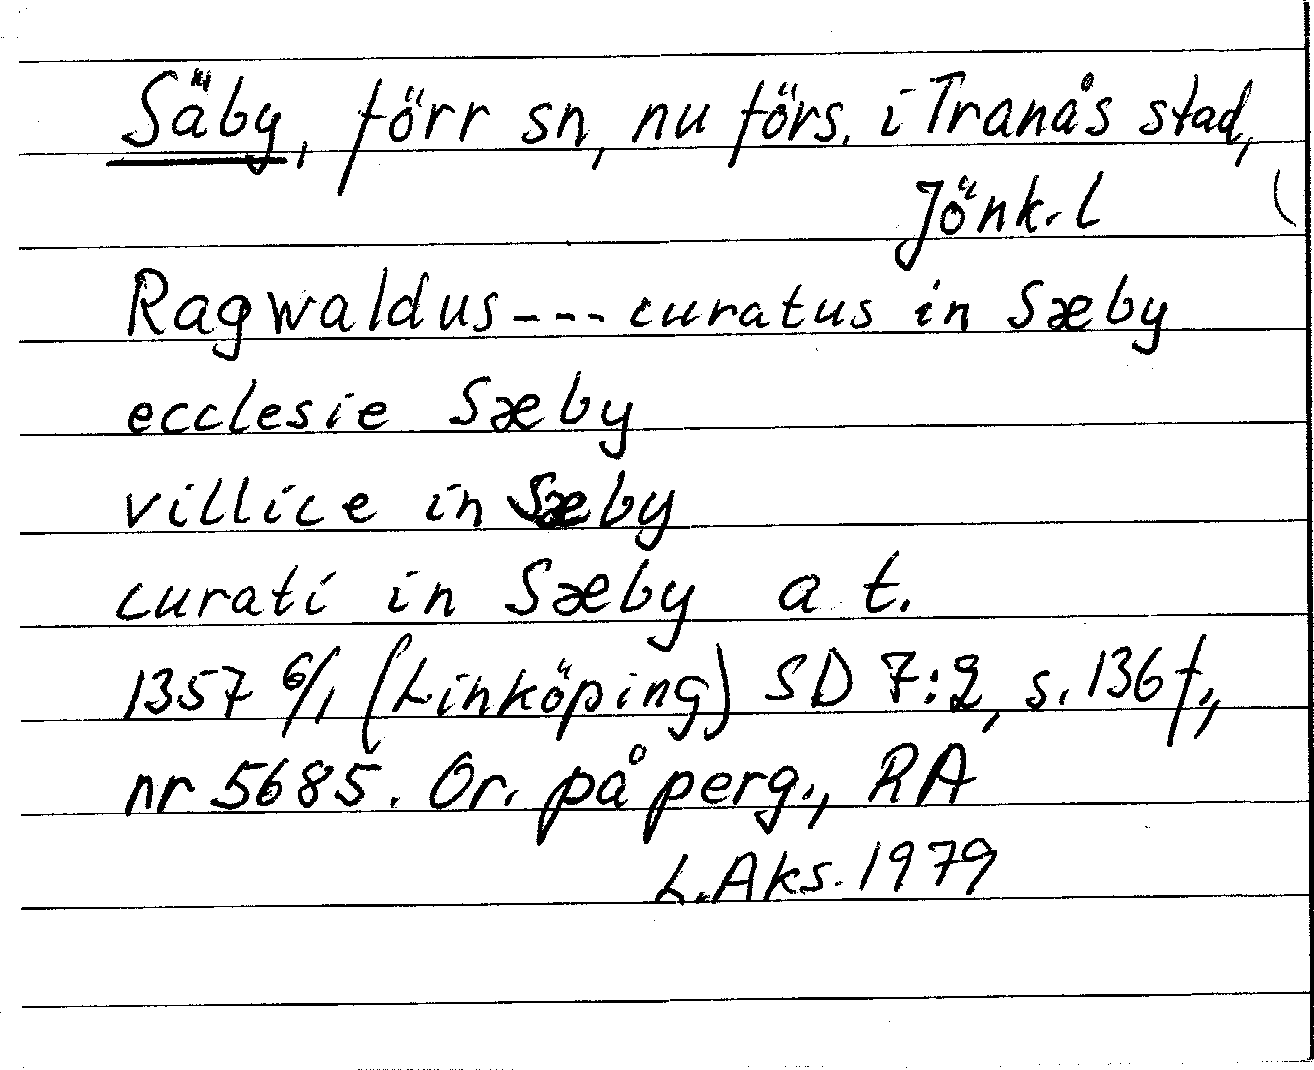 Säby, förr sn, nu förs. i Tranås stad,
Jönk. l
Ragwaldus --- curatus in Sæby
ecclesie Sæby
villice in Sæby
curati in Sæby a t.
1357 6/1 (Linköping) SD 7:2, s. 136 f.,
nr 5685. Or. på perg., RA
L. Aks. 1979